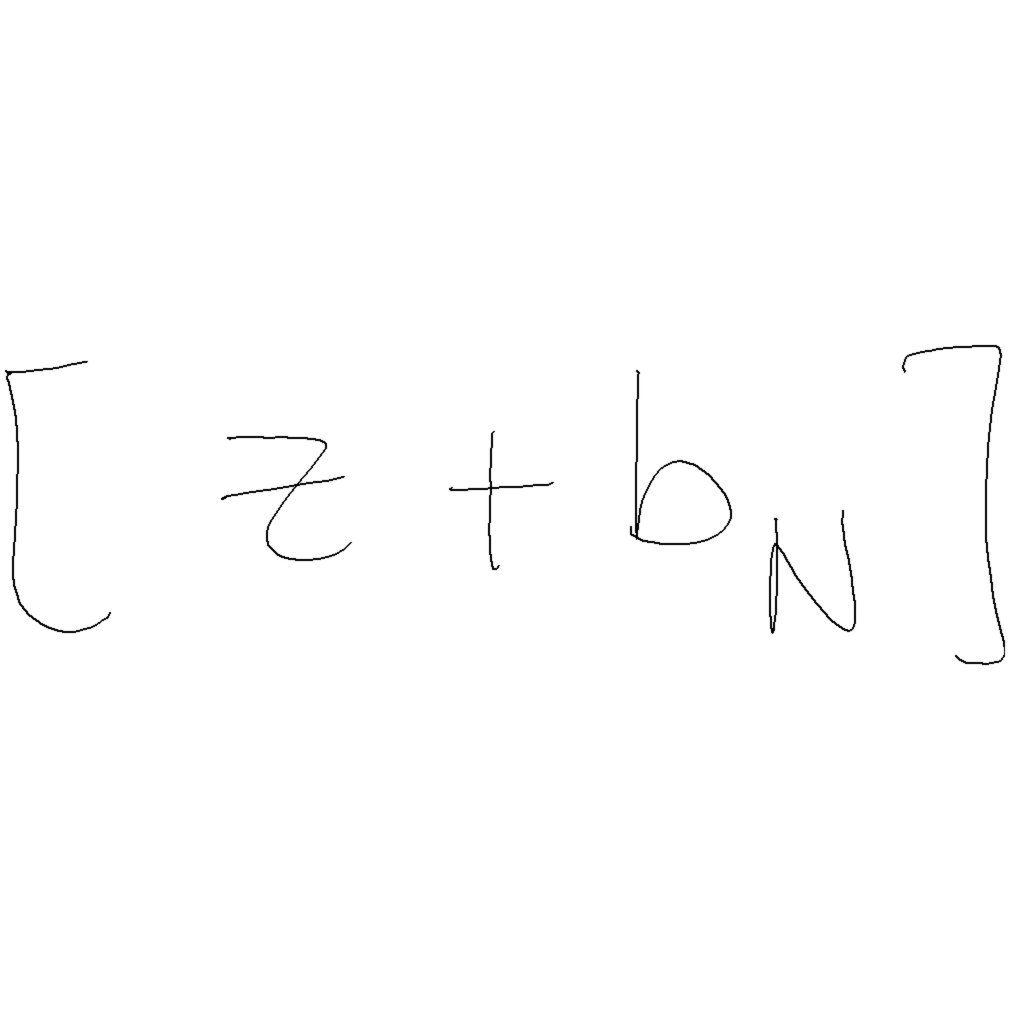 [z + b_N]